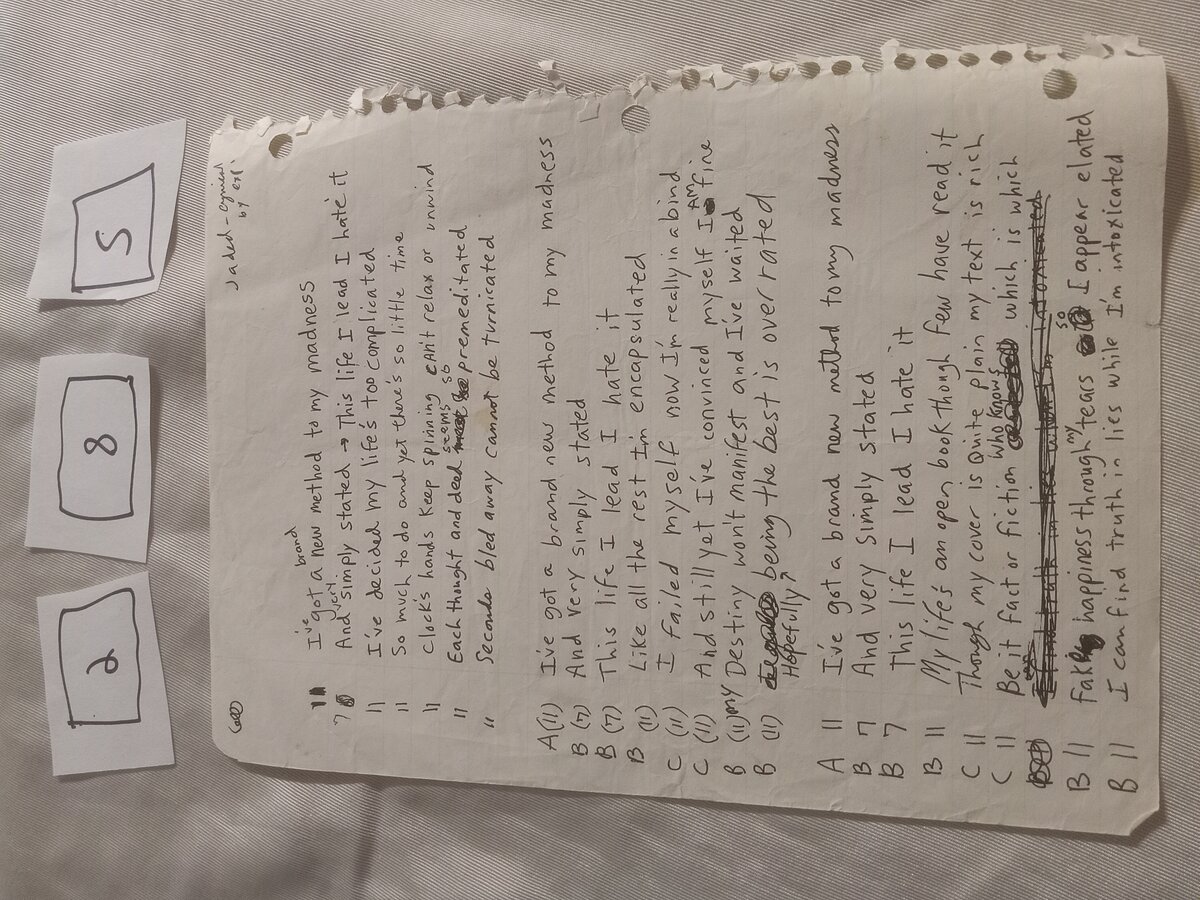 2
8
5
Jaded - cynical
by exp.
brand
I've got a new method to my madness
7 And very simply stated → This life I lead I hate it
11 I've decided my life's too complicated
11 So much to do and yet there's so little time
11 Clock's hands keep spinning can't relax or unwind
11 Each thought and deed seems so premeditated
11 Seconds bled away cannot be turnicated
A (11) I've got a brand new method to my madness
B (7) And very simply stated
B (7) This life I lead I hate it
B (11) Like all the rest I'm encapsulated
C (11) I failed myself now I'm really in a bind
C (11) And still yet I've convinced myself I AM fine
B (11) my Destiny won't manifest and I've waited
B (11) being the best is over rated
Hopefully
A 11 I've got a brand new method to my madness
B 7 And very simply stated
B 7 This life I lead I hate it
B 11 My life's an open book though few have read it
C 11 Though my cover is quite plain my text is rich
C 11 Be it fact or fiction who knows which is which
B 11 Fake happiness through my tears so I appear elated
B 11 I can find truth in lies while I'm intoxicated